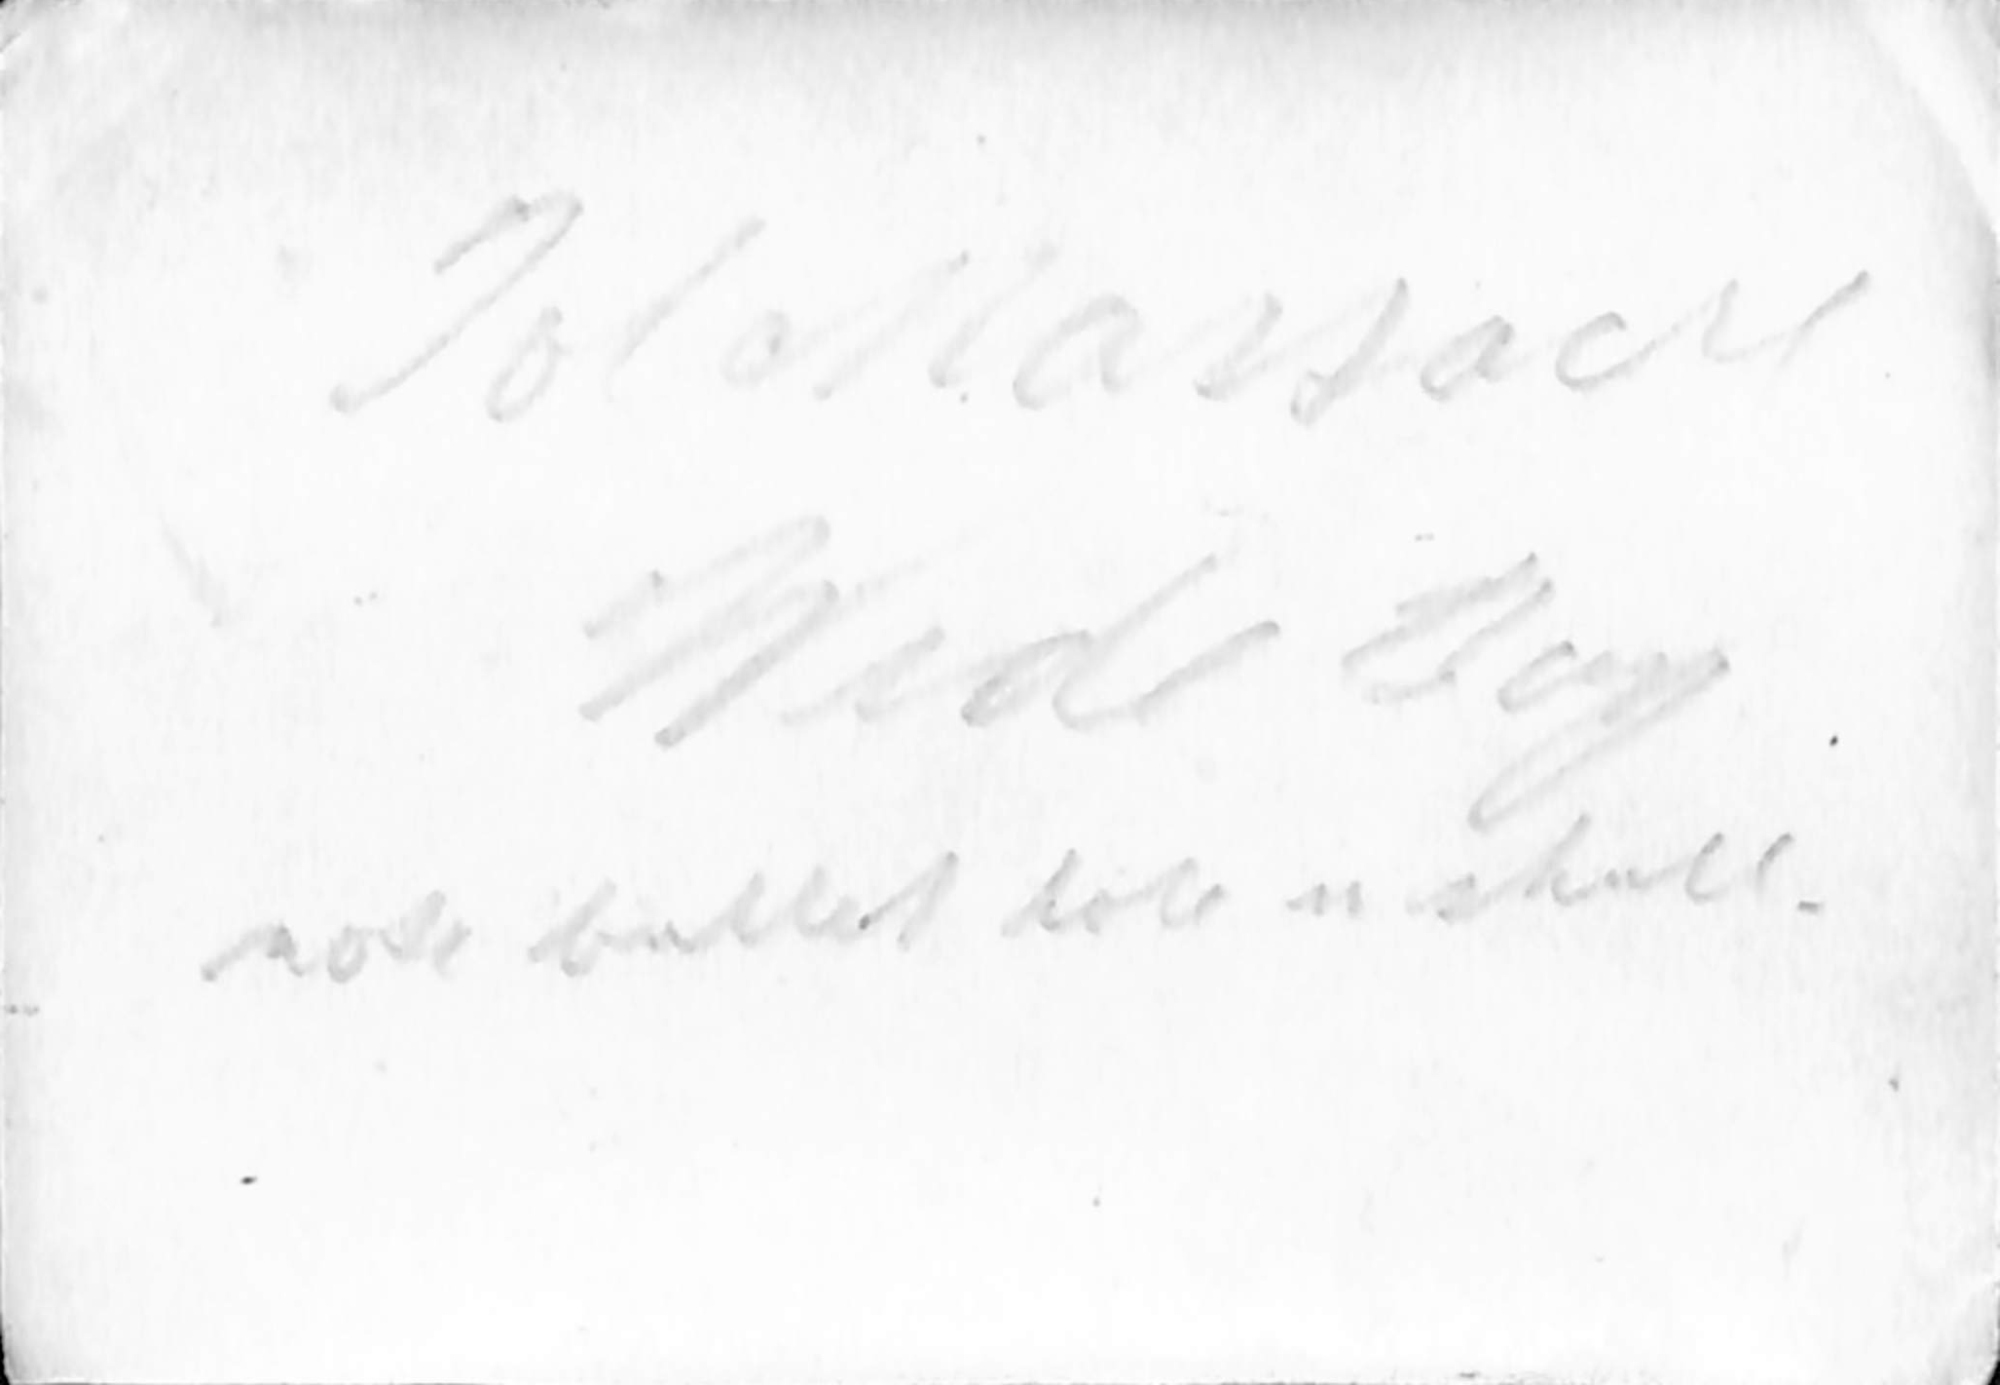 Tolo Massacre
Wede Bay
note bullet hole in skull.